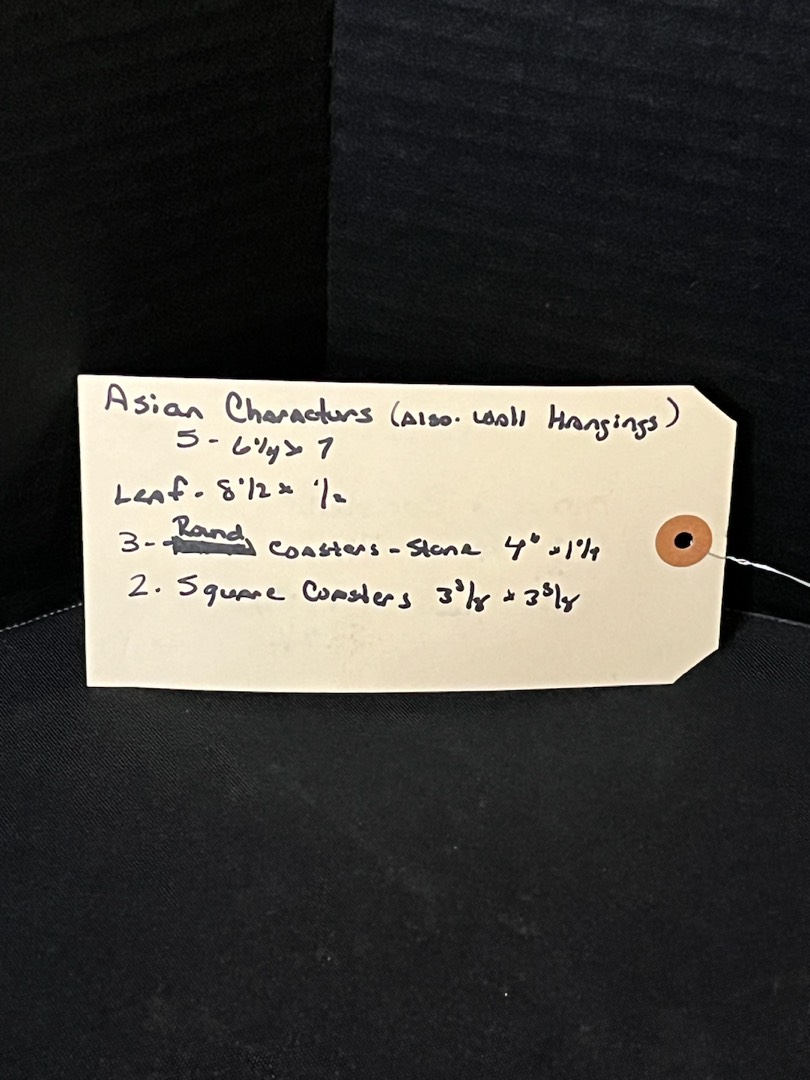 Asian Characters (Also. Wall Hangings)
5 - 6 1/4 x 7
Leaf - 8 1/2 x 1/2
3 - Round Coasters - Stone 4" x 1/4
2. Square Coasters 3 3/8 x 3 3/8